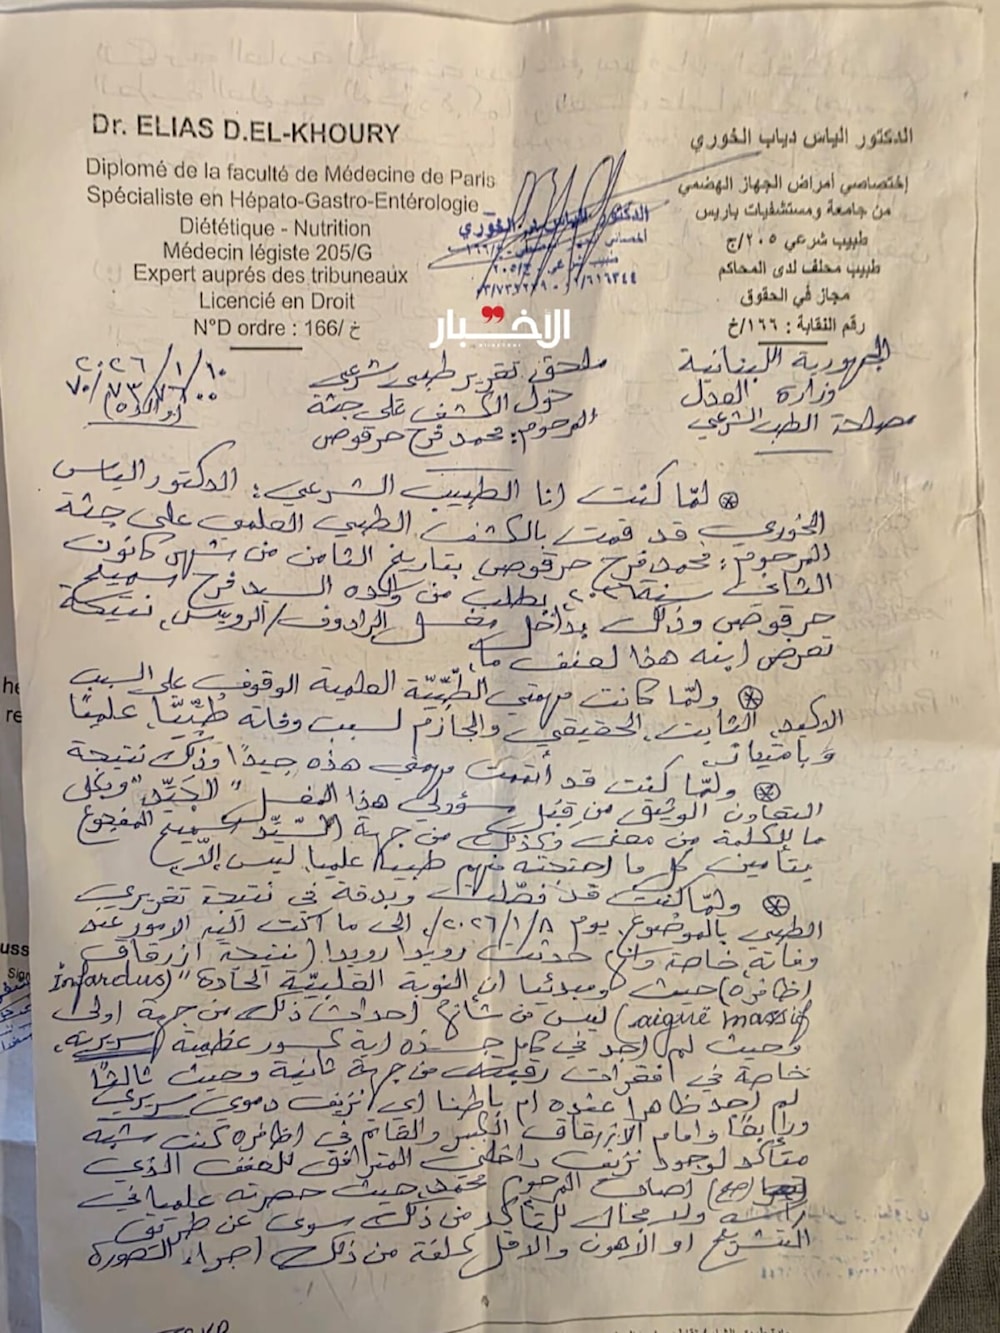 Dr. ELIAS D.EL-KHOURY
Diplomé de la faculté de Médecine de Paris
Spécialiste en Hépato-Gastro-Entérologie
Diététique - Nutrition
Médecin légiste 205/G
Expert auprés des tribuneaux
Licencié en Droit
N°D ordre : 166/خ
الدكتور الياس دياب الخوري
إختصاصي أمراض الجهاز الهضمي
من جامعة ومستشفيات باريس
طبيب شرعي ٢٠٥/ج
طبيب محلف لدى المحاكم
مجاز في الحقوق
رقم النقابة : ١٦٦/خ
الأخبار
الجمهورية اللبنانية
وزارة العدل
مصلحة الطب الشرعي
ملحق تقرير طبي شرعي
حول الكشف على جثة
المرحوم: محمد فرج حرقوص
٢٠٢٦/١/١٠
لمّا كنت انا الطبيب الشرعي: الدكتور الياس
الخوري قد قمت بالكشف الطبي العلمي على جثة
المرحوم: محمد فرج حرقوص بتاريخ الثامن من شهر كانون
الثاني سنة ٢٠٢٦، بطلب من والده السيد فرج سميح
حرقوص وذلك بداخل مغسل الرادوف/الرويس، نتيجة
تعرض ابنه هذا لعنف ما.
ولمّا كانت مهمتي الطبّيّة العلمية الوقوف على السبب
الاكيد، الثابت، الحقيقي والجازم لسبب وفاته طُبّيًّا، علميًا
وبامتياز.
ولمّا كنت قد أتممت مهمتي هذه جيدًا وذلك نتيجة
التعاون الوثيق من قِبَل مسؤولي هذا المغسل "الجَيّد" وبكل
ما للكلمة من معنى وكذلك من جهة السّيّد سميح المفجوع
بتأمين كل ما احتجته منهم طبيا علميا ليس إلّا.
ولمّا كنت قد فصّلت وبدقة في نتيجة تقريري
الطبي بالموضوع، يوم ٢٠٢٦/١/٨، الى ما آلت اليه الامور عند
وفاته، خاصة و حدثت رويدا رويدا (نتيجة ازرقاق
اظافره) حيث ومبدئيا ان النوبة القلبيّة الحادة "(Infarctus
aigue massif) ليس من شأنها احداث ذلك من جهة اولى
وحيث لم اجد في كامل جسده اية كسور عظمية سريرية،
خاصة في فقرات رقبته من جهة ثانية وحيث ثالثًا
لم اجد ظاهرا عنده ام باطنا اي نزيف دموي سريري
ورابعًا وامام الازرقاق الكبير والقاتم في اظافره كنت شبه
متأكد لوجود نزيف داخلي المترافق للعنف الذي
اصاب المرحوم محمد، حيث حصرته علميا في
رأسه ولا مجال للتأكد من ذلك سوى عن طريق
التشريح او الأهون والاقل كلفة من ذلك اجراء الصورة